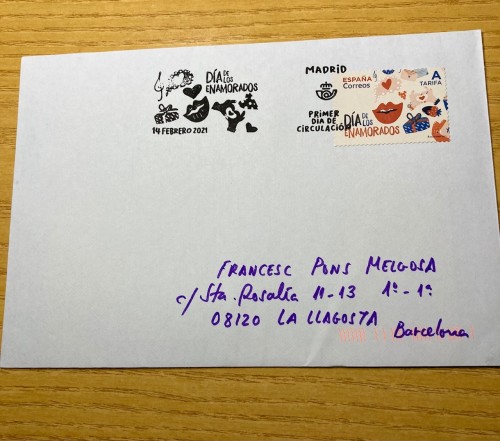 DÍA DE LOS ENAMORADOS
14 FEBRERO 2021
MADRID
PRIMER DIA DE CIRCULACIÓN
ESPAÑA
Correos
A
TARIFA
DÍA DE LOS ENAMORADOS
FRANCESC PONS MELGOSA
c/ Sta. Rosalía 11-13 1º-1ª
08120 LA LLAGOSTA
Barcelona